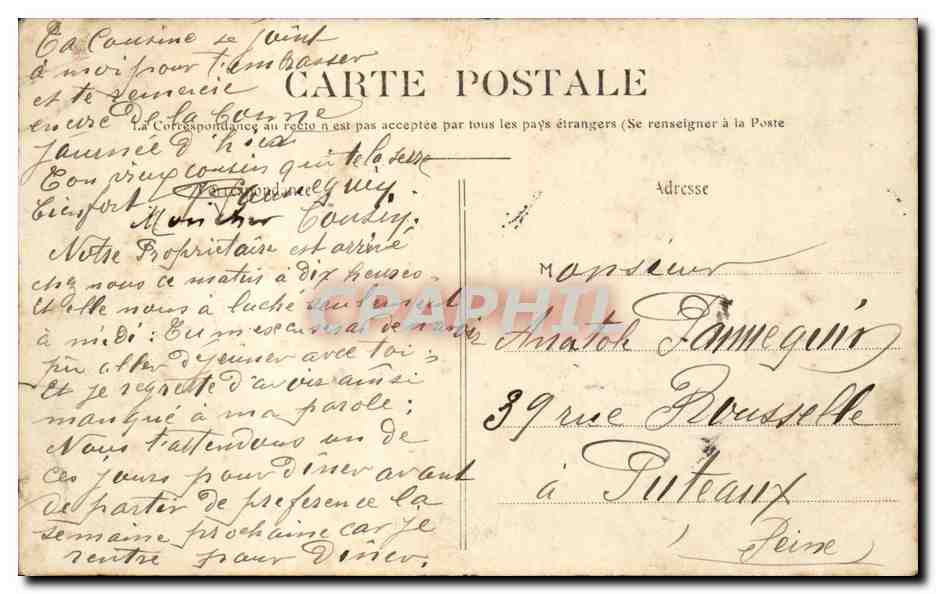 Mon cher Cousin.
Notre Propriétaire est arrivé
chez nous ce matin à dix heures
et elle nous à laché seulement
à midi: Tu m'excuseras de n'avoir
pu aller déjeuner avec toi;
Et je regrette d'avoir ainsi
manqué à ma parole;
Nous t'attendons un de
ces jours pour diner avant
de partir de preference la
semaine prochaine car je
rentre pour Dîner.
Ta Cousine se joint
à moi pour t'embrasser
et te remercie
encore de la bonne
journée d'hier
Ton vieux cousin qui te la serre
bien fort
CARTE POSTALE
La Correspondance au recto n'est pas acceptée par tous les pays étrangers (Se renseigner à la Poste
Correspondance
Adresse
Monsieur
Anatole Pannequin
39 rue Rousselle
à Puteaux
Seine
CPAPHIL